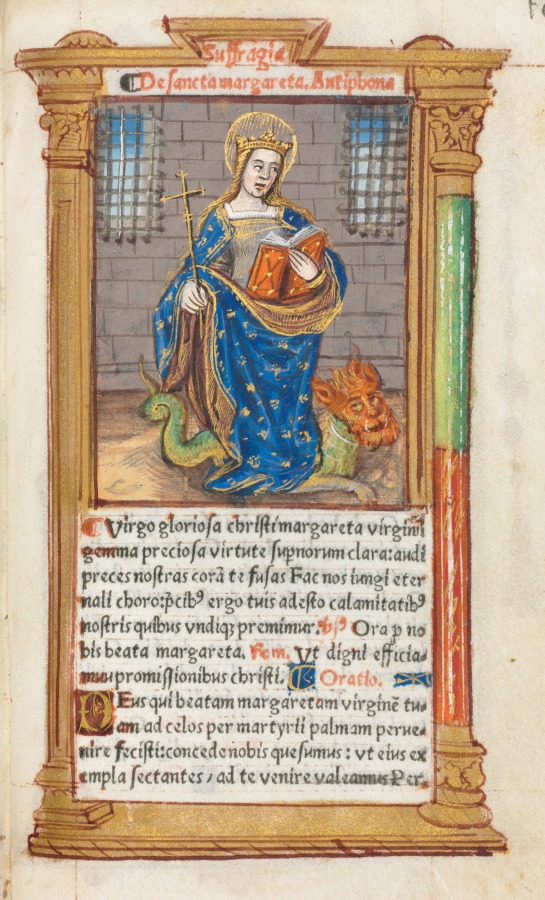 Suffragia
De sancta margareta. Antiphona
Virgo gloriosa christi margareta virginū
gemma preciosa virtute supnorum clara: audi
preces nostras corā te fusas Fac nos iungi eter
nali choro: p̄cibꝰ ergo tuis adesto calamitatibꝰ
nostris quibus vndiqꝫ premimur. v̄sꝰ Ora p no
bis beata margareta. Rem. Vt digni efficia-
mur promissionibus christi. Oratio.
DEus qui beatam margaretam virginē tu-
am ad celos per martyrii palmam perue-
nire fecisti: concede nobis quesumus: vt eius ex
empla sectantes / ad te venire valeamus Per